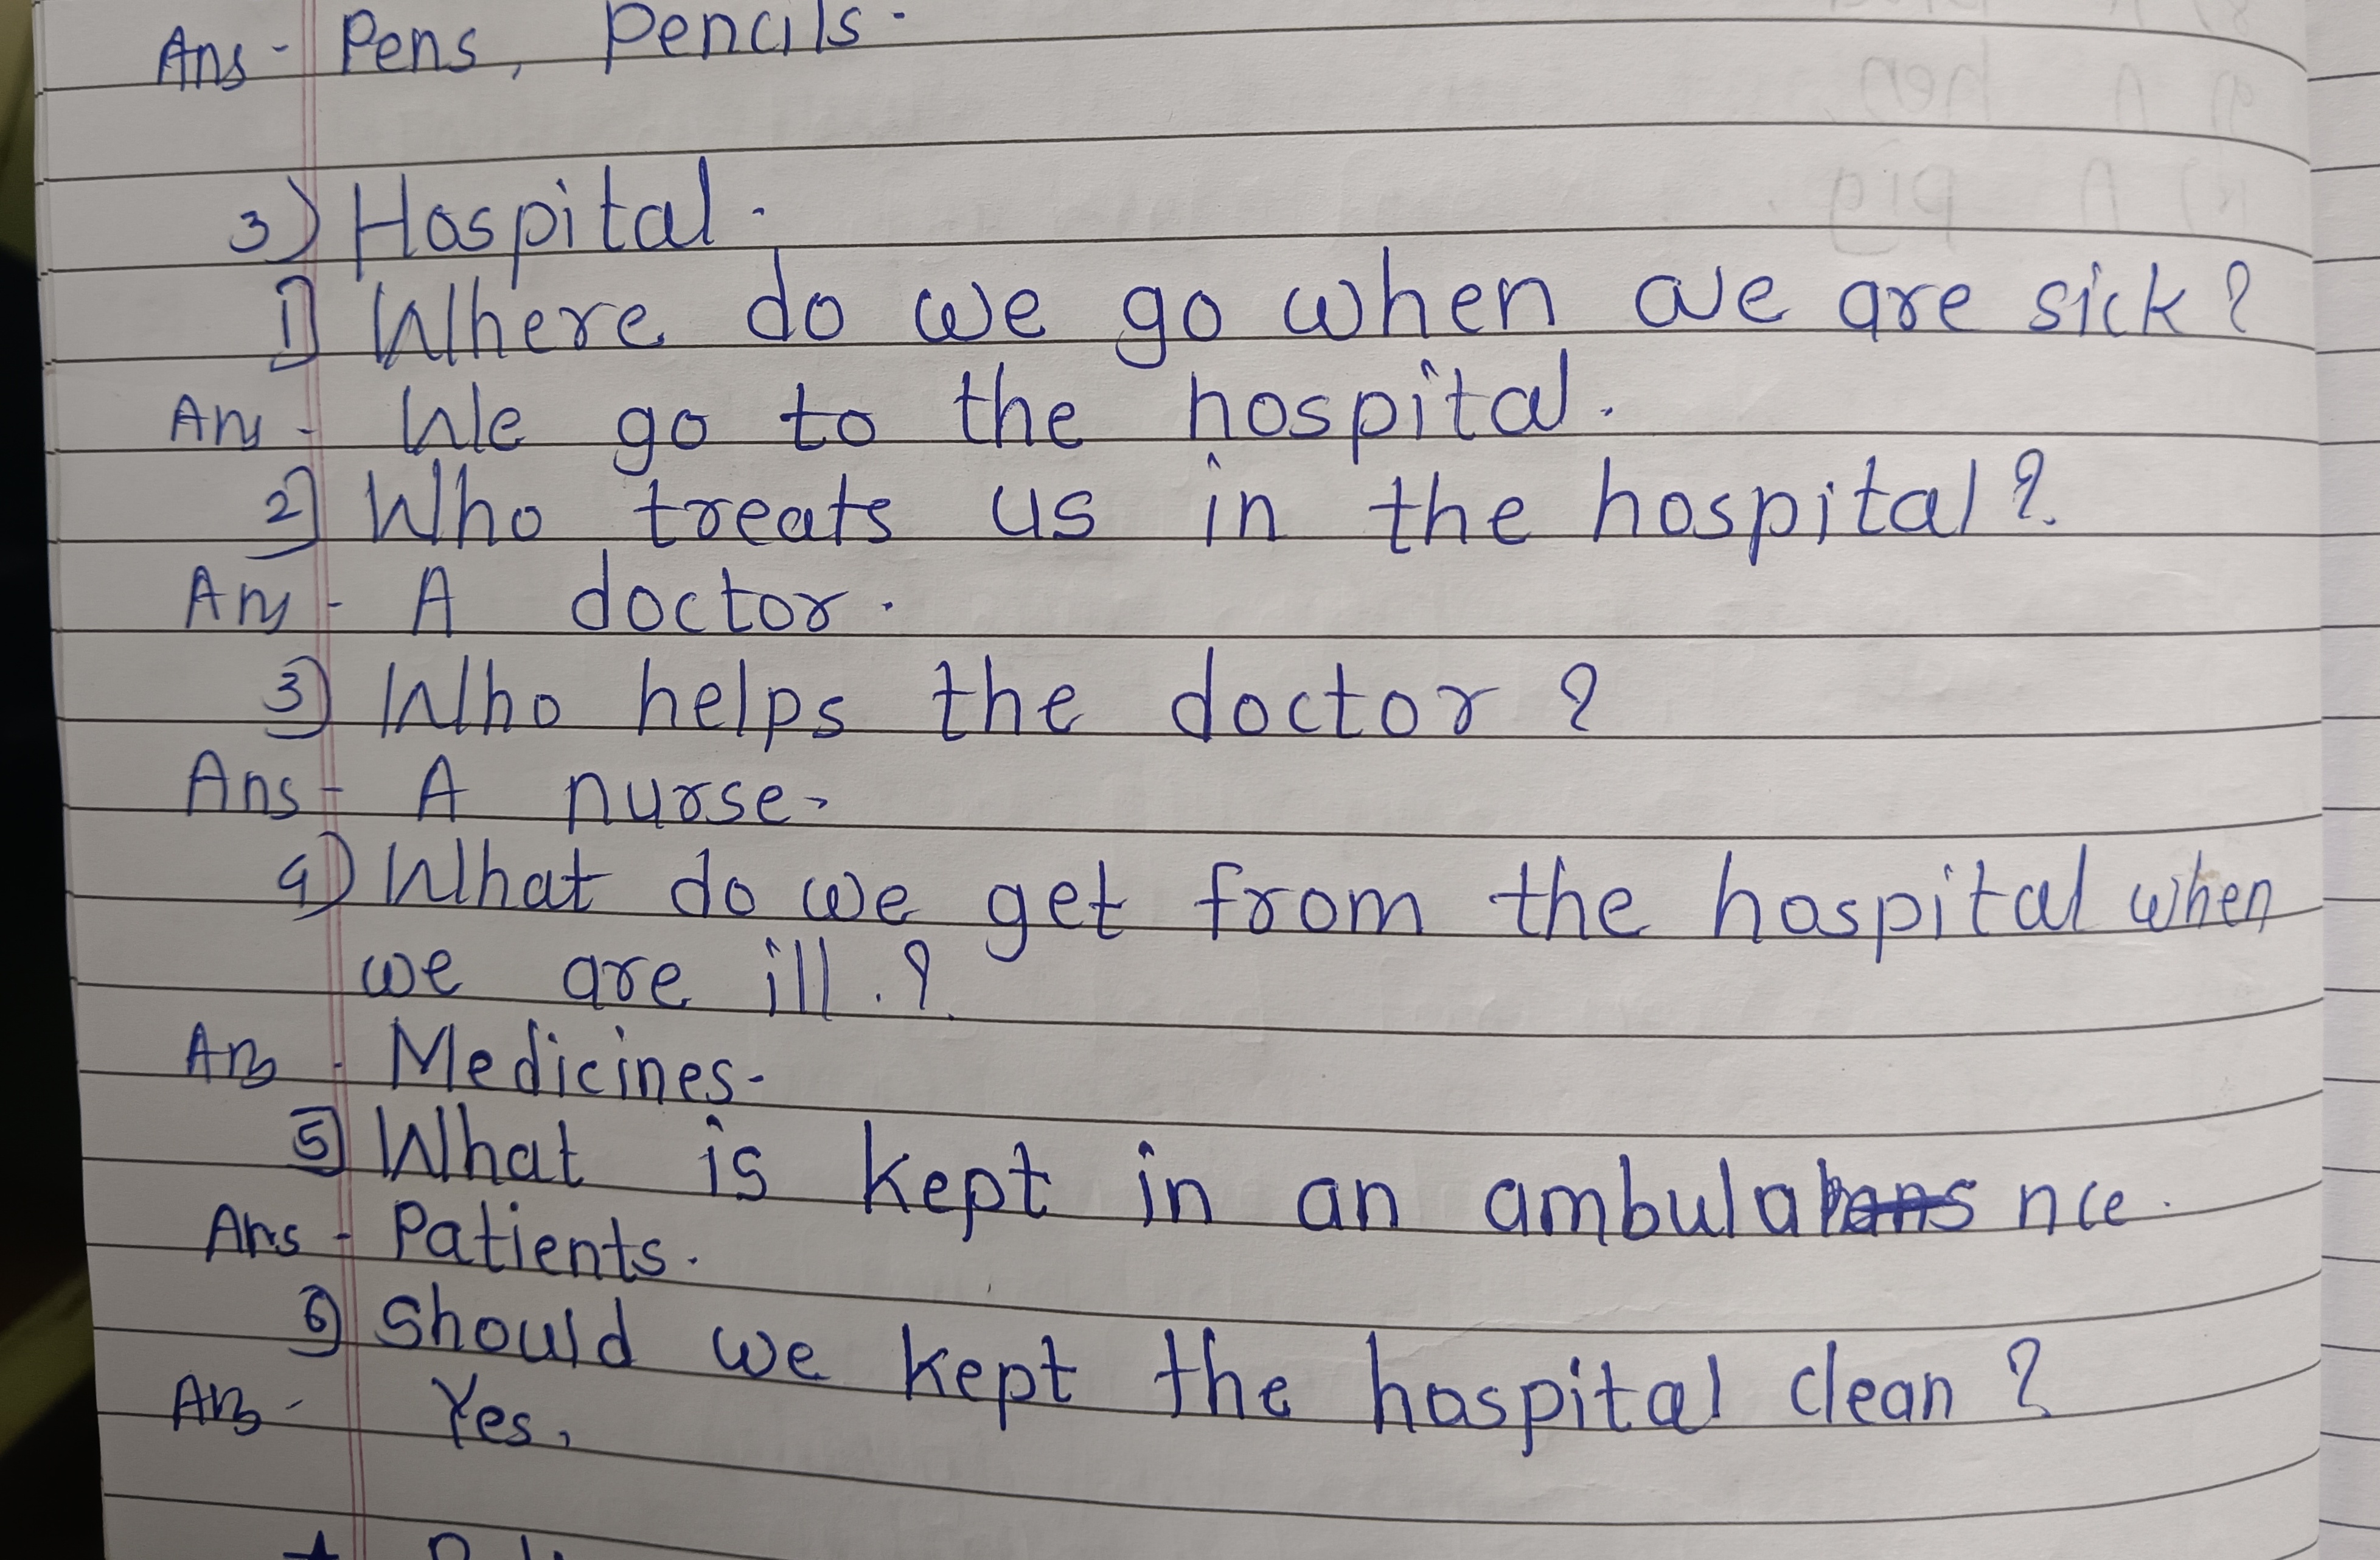 Ans - Pens, Pencils.
3) Hospital.
1) Where do we go when we are sick?
Ans - We go to the hospital.
2) Who treats us in the hospital?
Ans - A doctor.
3) Who helps the doctor?
Ans - A nurse.
4) What do we get from the hospital when
we are ill.?
Ans - Medicines.
5) What is kept in an ambulance.
Ans - Patients.
6) Should we kept the hospital clean?
Ans - Yes,